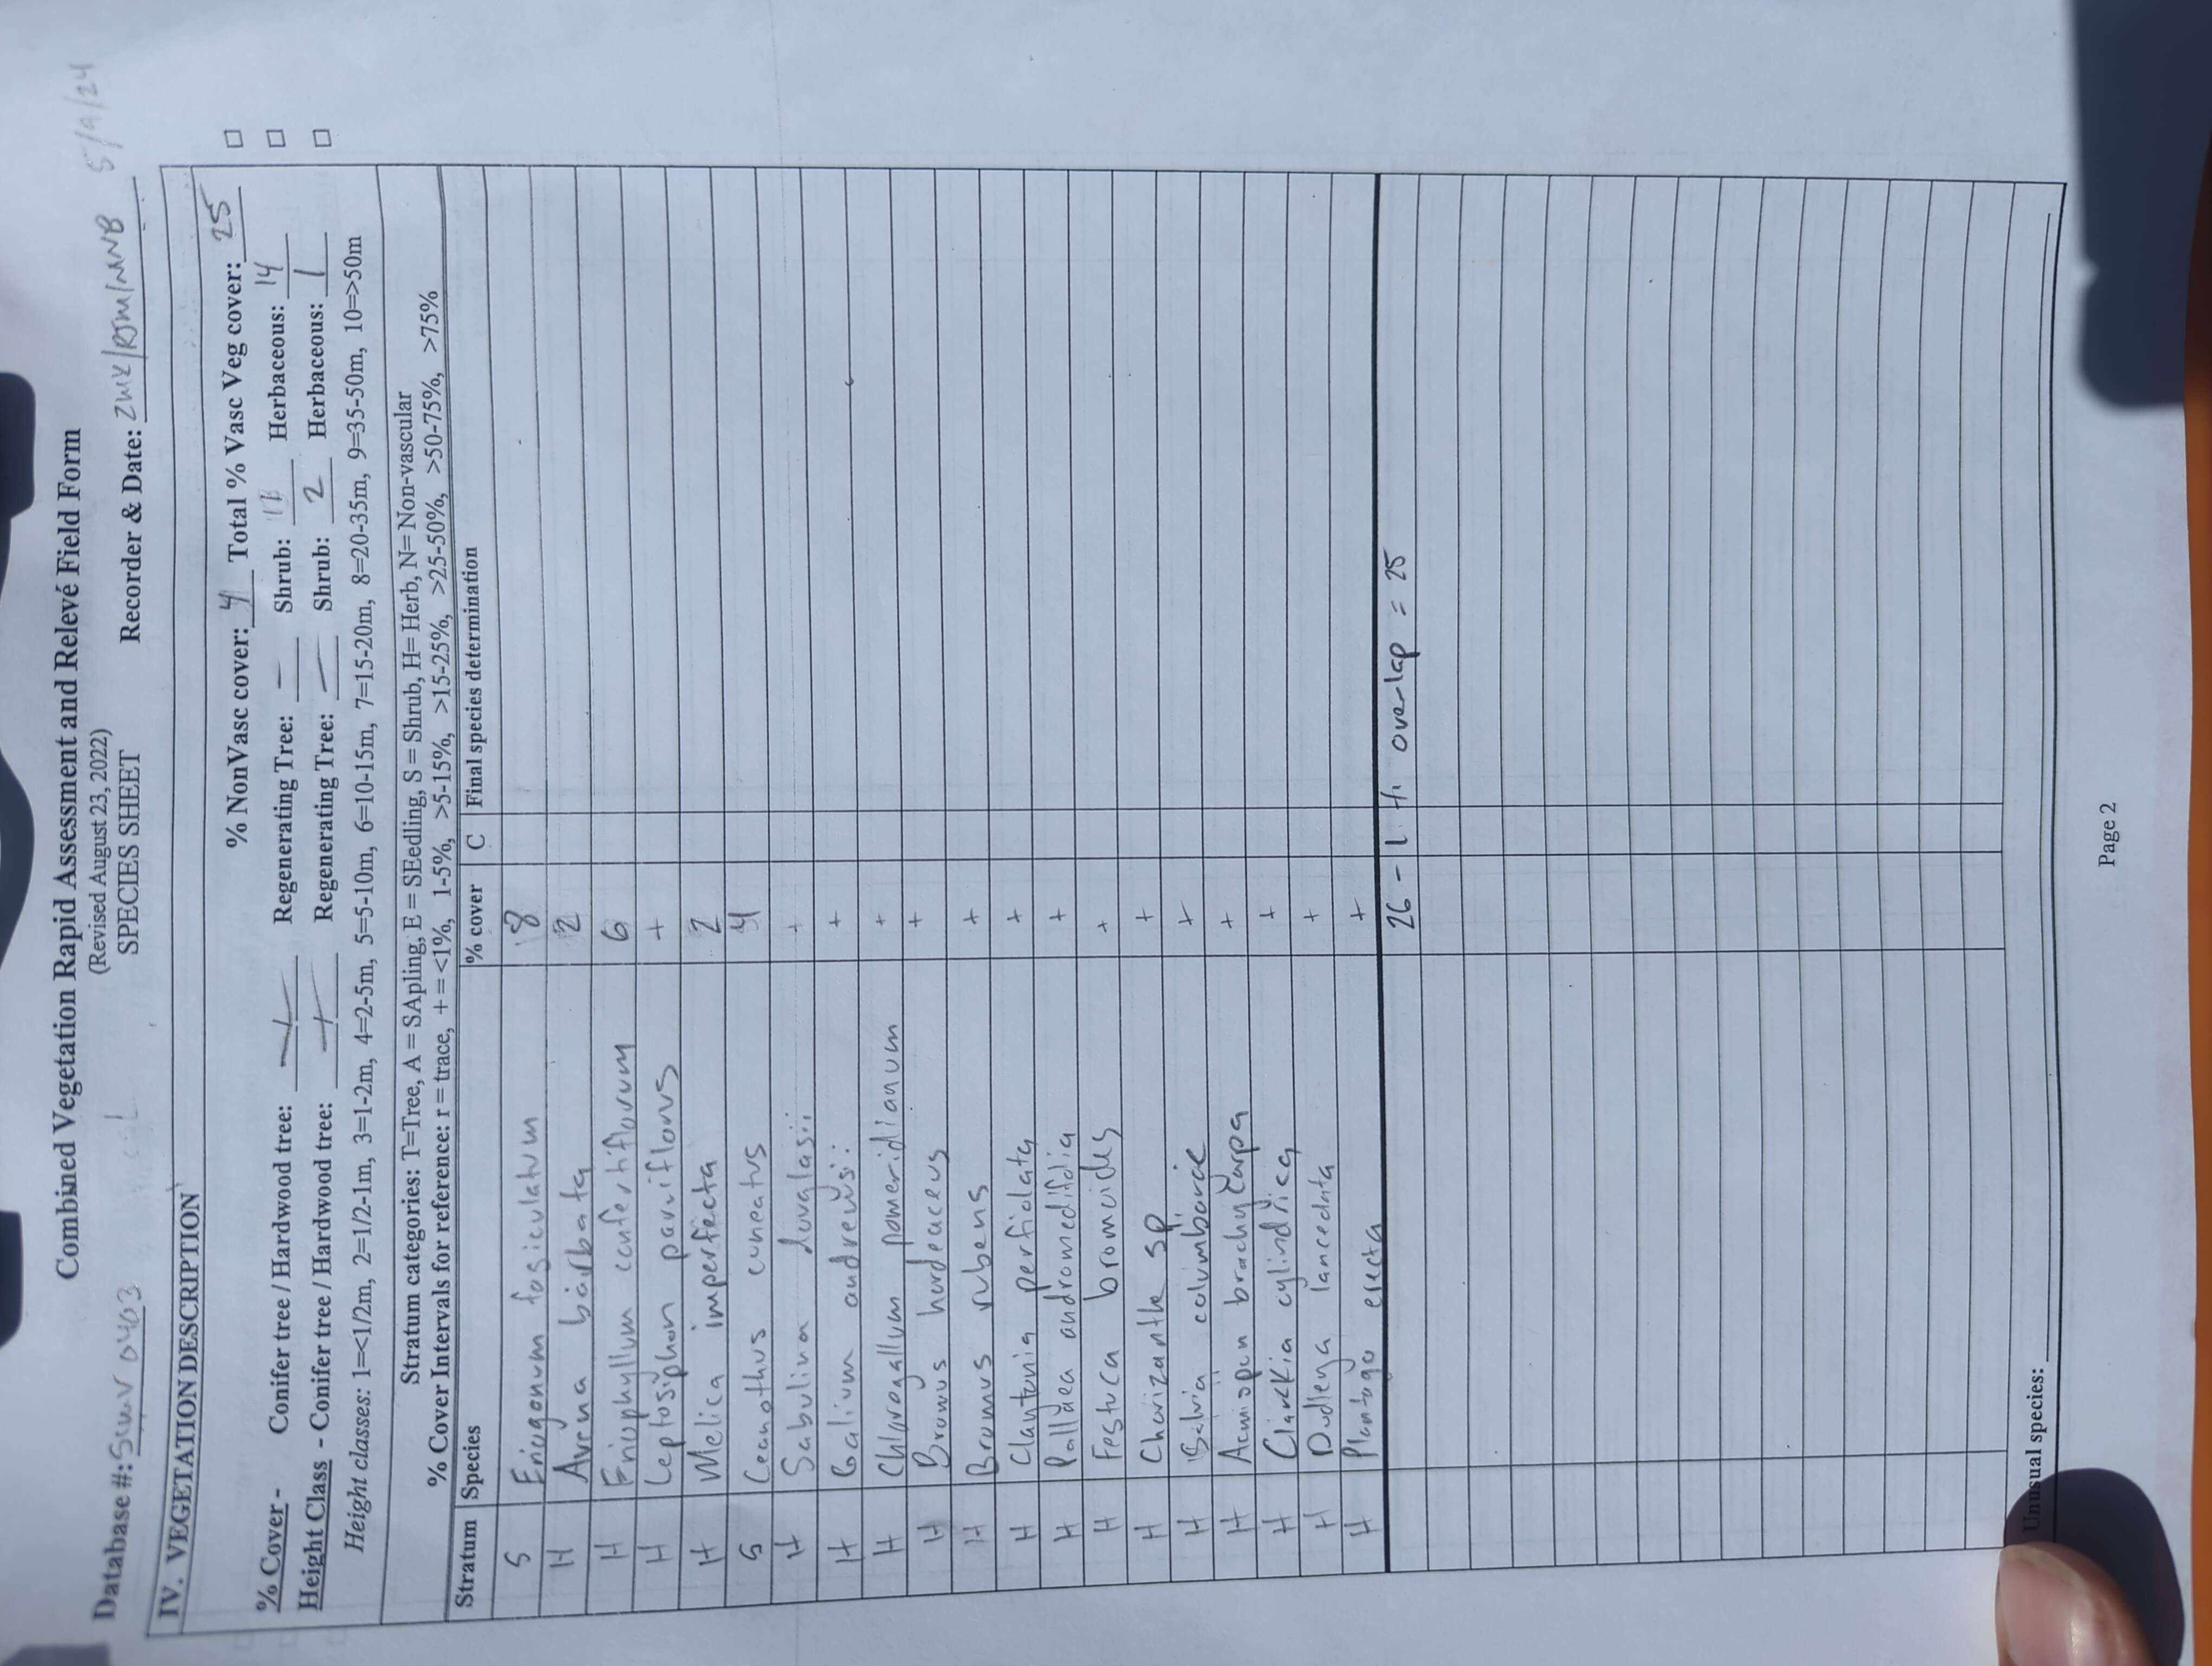 Combined Vegetation Rapid Assessment and Relevé Field Form
(Revised August 23, 2022)
Database #: SWWV 0403 SPECIES SHEET Recorder & Date: ZWK/RJM/MNB 5/9/24
IV. VEGETATION DESCRIPTION
% NonVasc cover: 4 Total % Vasc Veg cover: 25 □
% Cover - Conifer tree / Hardwood tree: — / — Regenerating Tree: — Shrub: Herbaceous: 14 □
Height Class - Conifer tree / Hardwood tree: — / — Regenerating Tree: — Shrub: 2 Herbaceous: 1 □
Height classes: 1=<1/2m, 2=1/2-1m, 3=1-2m, 4=2-5m, 5=5-10m, 6=10-15m, 7=15-20m, 8=20-35m, 9=35-50m, 10=>50m
Stratum categories: T=Tree, A = SApling, E = SEedling, S = Shrub, H= Herb, N= Non-vascular
% Cover Intervals for reference: r = trace, + = <1%, 1-5%, >5-15%, >15-25%, >25-50%, >50-75%, >75%
Stratum Species % cover C Final species determination
S Eriogonum fasiculatum 8
H Avena barbata 2
H Eriophyllum confertiflorum 6
H Leptosiphon parviflorus +
H Melica imperfecta 2
S Ceanothus cuneatus 4
H Sabulina douglasii +
H Galium andrewsii +
H Chlorogallum pomeridianum +
H Bromus hordeaceus +
H Bromus rubens +
H Claytonia perfiolata +
H Pallaea andromedifolia +
H Festuca bromoides +
H Chorizanthe sp +
H Salvia columbariae +
H Acmispon brachycarpa +
H Clarkia cylindrica +
H Dudleya lanceolata +
H Plantago erecta +
26 - 1 overlap = 25
Unusual species:
Page 2